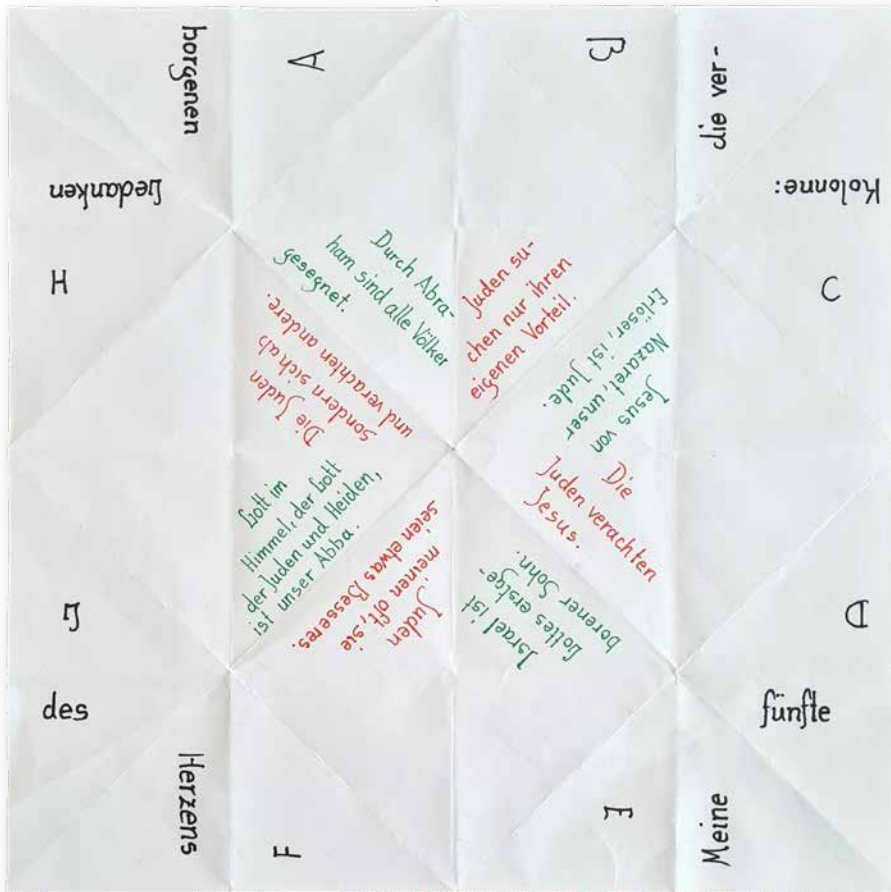 A
B
C
D
E
F
G
H
Meine
fünfte
Kolonne:
die ver-
borgenen
Gedanken
des
Herzens
Durch Abra-
ham sind alle Völker
gesegnet.
Juden su-
chen nur ihren
eigenen Vorteil.
Jesus von
Nazaret, unser
Erlöser, ist Jude.
Die
Juden verachten
Jesus.
Israel ist
Gottes erstge-
borener Sohn.
Juden
meinen oft, sie
seien etwas Besseres.
Gott im
Himmel, der Gott
der Juden und Heiden,
ist unser Abba.
Die Juden
sondern sich ab
und verachten andere.